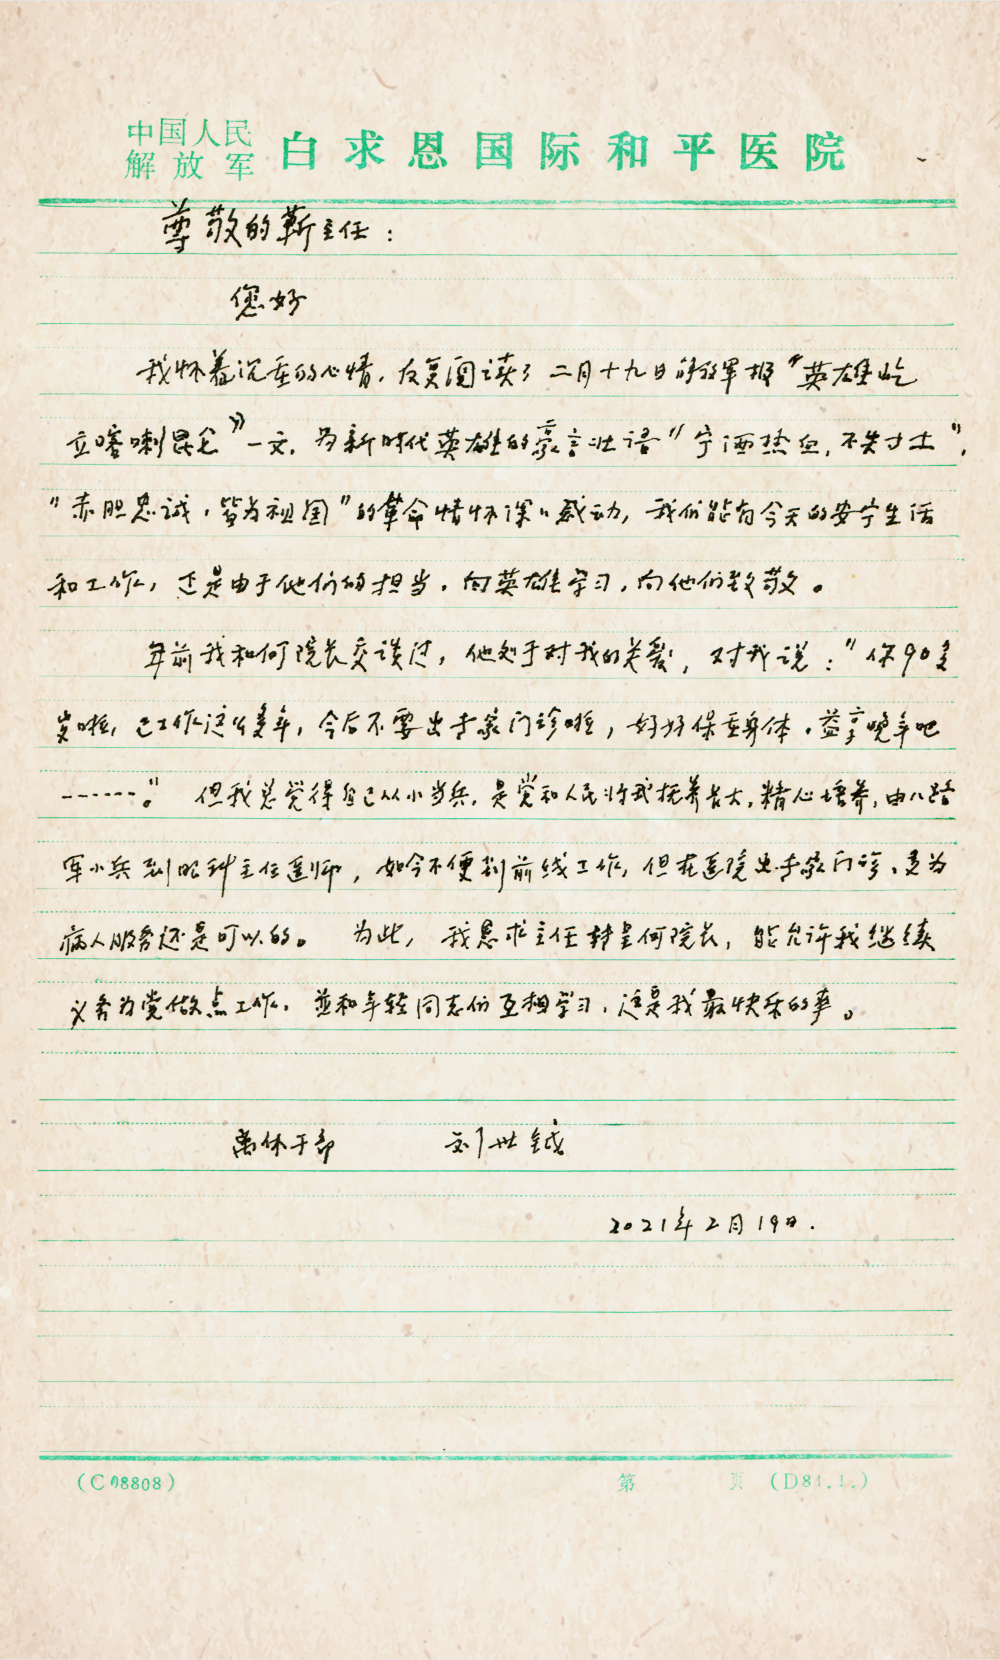 中国人民
解放军 白求恩国际和平医院
尊敬的靳主任：
您好
我怀着沉重的心情，反复阅读了二月十九日解放军报“英雄屹
立喀喇昆仑”一文，为新时代英雄的豪言壮语“宁洒热血，不失寸土”，
“赤胆忠诚，皆为祖国”的革命情怀深〃感动，我们能有今天的安宁生活
和工作，正是由于他们的担当，向英雄学习，向他们致敬。
年前我和何院长交谈过，他处于对我的关爱，对我说：“你90多
岁啦，已工作这么多年，今后不要出专家门诊啦，好好保重身体，益享晚年吧
------。” 但我总觉得自己从小当兵，是党和人民将我抚养长大，精心培养，由八路
军小兵到眼科主任医师，如今不便到前线工作，但在医院出专家门诊，多为
病人服务还是可以的。 为此，我恳求主任转呈何院长，能允许我继续
义务为党做点工作，並和年轻同志们互相学习，这是我最快乐的事。
离休干部 刘世钺
2021年2月19日.
(C08808) 第 页 (D81.1.)